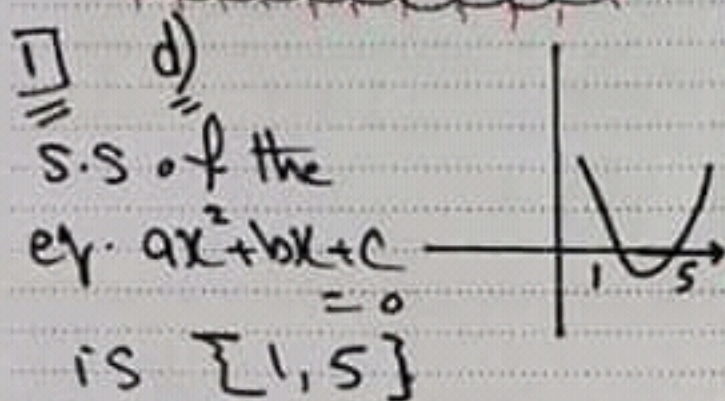 1 d)
S.S of the
eq. ax²+bx+c
= 0
is {1, 5}
1 5